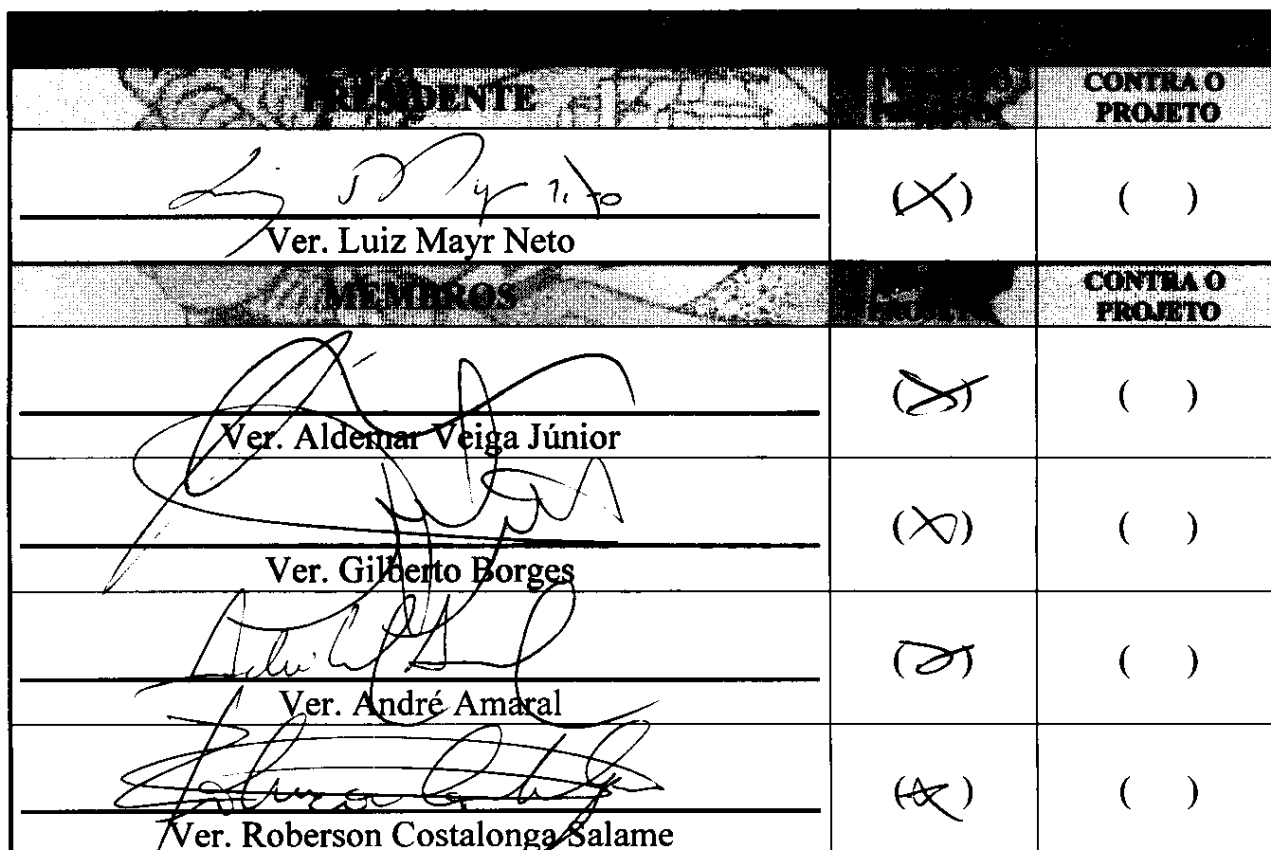 PRESIDENTE
PROJETO
CONTRA O
PROJETO
(X) ( )
Ver. Luiz Mayr Neto
MEMBROS
PROJETO
CONTRA O
PROJETO
(X) ( )
Ver. Aldemar Veiga Júnior
(X) ( )
Ver. Gilberto Borges
(X) ( )
Ver. André Amaral
(X) ( )
Ver. Roberson Costalonga Salame